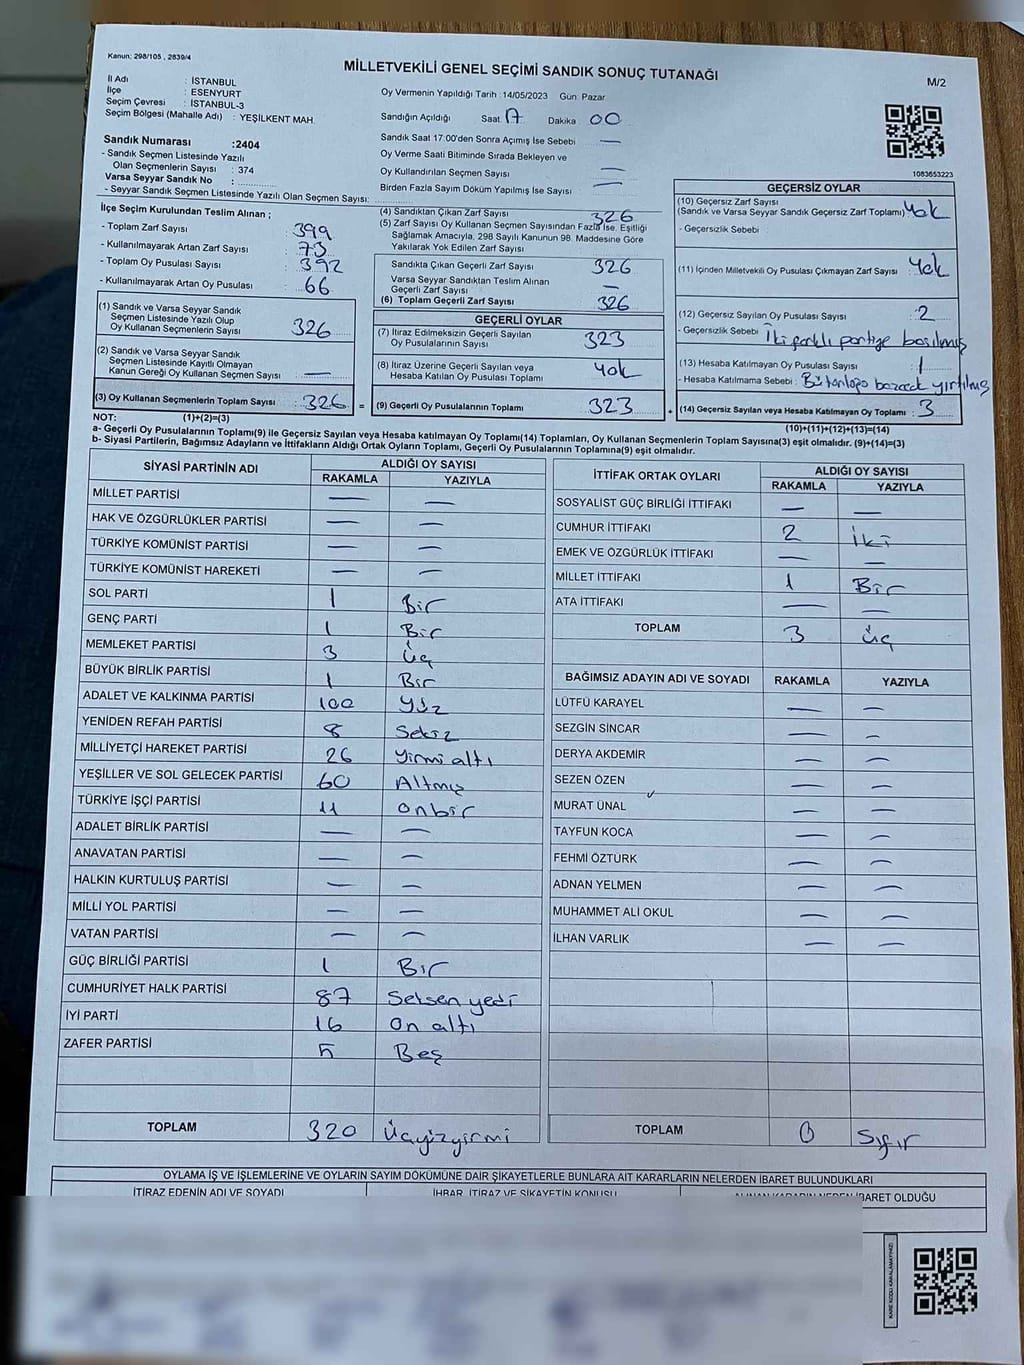 Kanun: 298/105 , 2839/4
MİLLETVEKİLİ GENEL SEÇİMİ SANDIK SONUÇ TUTANAĞI
M/2
İl Adı : İSTANBUL
İlçe : ESENYURT
Seçim Çevresi : İSTANBUL-3
Seçim Bölgesi (Mahalle Adı) : YEŞİLKENT MAH.
Oy Vermenin Yapıldığı Tarih : 14/05/2023 Gün: Pazar
Sandığın Açıldığı Saat 17 Dakika 00
Sandık Saat 17:00'den Sonra Açımış İse Sebebi —
Oy Verme Saati Bitiminde Sırada Bekleyen ve
Oy Kullandırılan Seçmen Sayısı —
Birden Fazla Sayım Döküm Yapılmış İse Sayısı —
1083653223
Sandık Numarası :2404
- Sandık Seçmen Listesinde Yazılı
Olan Seçmenlerin Sayısı : 374
Varsa Seyyar Sandık No :
- Seyyar Sandık Seçmen Listesinde Yazılı Olan Seçmen Sayısı:
İlçe Seçim Kurulundan Teslim Alınan ;
- Toplam Zarf Sayısı : 399
- Kullanılmayarak Artan Zarf Sayısı : 73
- Toplam Oy Pusulası Sayısı : 392
- Kullanılmayarak Artan Oy Pusulası : 66
(1) Sandık ve Varsa Seyyar Sandık
Seçmen Listesinde Yazılı Olup
Oy Kullanan Seçmenlerin Sayısı : 326
(2) Sandık ve Varsa Seyyar Sandık
Seçmen Listesinde Kayıtlı Olmayan
Kanun Gereği Oy Kullanan Seçmen Sayısı : —
(3) Oy Kullanan Seçmenlerin Toplam Sayısı : 326 =
(4) Sandıktan Çıkan Zarf Sayısı 326
(5) Zarf Sayısı Oy Kullanan Seçmen Sayısından Fazla İse, Eşitliği
Sağlamak Amacıyla, 298 Sayılı Kanunun 98. Maddesine Göre
Yakılarak Yok Edilen Zarf Sayısı
Sandıkta Çıkan Geçerli Zarf Sayısı 326
Varsa Seyyar Sandıktan Teslim Alınan
Geçerli Zarf Sayısı —
(6) Toplam Geçerli Zarf Sayısı 326
GEÇERLİ OYLAR
(7) İtiraz Edilmeksizin Geçerli Sayılan
Oy Pusulalarının Sayısı : 323
(8) İtiraz Üzerine Geçerli Sayılan veya
Hesaba Katılan Oy Pusulası Toplamı : Yok
(9) Geçerli Oy Pusulalarının Toplamı : 323 +
GEÇERSİZ OYLAR
(10) Geçersiz Zarf Sayısı
(Sandık ve Varsa Seyyar Sandık Geçersiz Zarf Toplamı) Yok
- Geçersizlik Sebebi :
(11) İçinden Milletvekili Oy Pusulası Çıkmayan Zarf Sayısı : Yok
(12) Geçersiz Sayılan Oy Pusulası Sayısı : 2
- Geçersizlik Sebebi : İki farklı partiye basılmış
(13) Hesaba Katılmayan Oy Pusulası Sayısı : 1
- Hesaba Katılmama Sebebi : yırtılmış
(14) Geçersiz Sayılan veya Hesaba Katılmayan Oy Toplamı : 3
NOT: (1)+(2)=(3)
(10)+(11)+(12)+(13)=(14)
a- Geçerli Oy Pusulalarının Toplamı(9) ile Geçersiz Sayılan veya Hesaba katılmayan Oy Toplamı(14) Toplamları, Oy Kullanan Seçmenlerin Toplam Sayısına(3) eşit olmalıdır. (9)+(14)=(3)
b- Siyasi Partilerin, Bağımsız Adayların ve İttifakların Aldığı Ortak Oyların Toplamı, Geçerli Oy Pusulalarının Toplamına(9) eşit olmalıdır.
SİYASİ PARTİNİN ADI ALDIĞI OY SAYISI
RAKAMLA YAZIYLA
MİLLET PARTİSİ — —
HAK VE ÖZGÜRLÜKLER PARTİSİ — —
TÜRKİYE KOMÜNİST PARTİSİ — —
TÜRKİYE KOMÜNİST HAREKETİ — —
SOL PARTİ 1 Bir
GENÇ PARTİ 1 Bir
MEMLEKET PARTİSİ 3 Üç
BÜYÜK BİRLİK PARTİSİ 1 Bir
ADALET VE KALKINMA PARTİSİ 100 Yüz
YENİDEN REFAH PARTİSİ 8 Sekiz
MİLLİYETÇİ HAREKET PARTİSİ 26 Yirmi altı
YEŞİLLER VE SOL GELECEK PARTİSİ 60 Altmış
TÜRKİYE İŞÇİ PARTİSİ 11 onbir
ADALET BİRLİK PARTİSİ — —
ANAVATAN PARTİSİ — —
HALKIN KURTULUŞ PARTİSİ — —
MİLLİ YOL PARTİSİ — —
VATAN PARTİSİ — —
GÜÇ BİRLİĞİ PARTİSİ 1 Bir
CUMHURİYET HALK PARTİSİ 87 Seksen yedi
İYİ PARTİ 16 On altı
ZAFER PARTİSİ 5 Beş
TOPLAM 320 Üçyüzyirmi
İTTİFAK ORTAK OYLARI ALDIĞI OY SAYISI
RAKAMLA YAZIYLA
SOSYALİST GÜÇ BİRLİĞİ İTTİFAKI — —
CUMHUR İTTİFAKI 2 İki
EMEK VE ÖZGÜRLÜK İTTİFAKI — —
MİLLET İTTİFAKI 1 Bir
ATA İTTİFAKI — —
TOPLAM 3 Üç
BAĞIMSIZ ADAYIN ADI VE SOYADI RAKAMLA YAZIYLA
LÜTFÜ KARAYEL — —
SEZGİN SİNCAR — —
DERYA AKDEMİR — —
SEZEN ÖZEN — —
MURAT ÜNAL — —
TAYFUN KOCA — —
FEHMİ ÖZTÜRK — —
ADNAN YELMEN — —
MUHAMMET ALİ OKUL — —
İLHAN VARLIK — —
TOPLAM 0 Sıfır
OYLAMA İŞ VE İŞLEMLERİNE VE OYLARIN SAYIM DÖKÜMÜNE DAİR ŞİKAYETLERLE BUNLARA AİT KARARLARIN NELERDEN İBARET BULUNDUKLARI
İTİRAZ EDENİN ADI VE SOYADI İHBAR, İTİRAZ VE ŞİKAYETİN KONUSU ALINAN KARARIN NEDEN İBARET OLDUĞU
KARE KODU KARALAMAYINIZ!